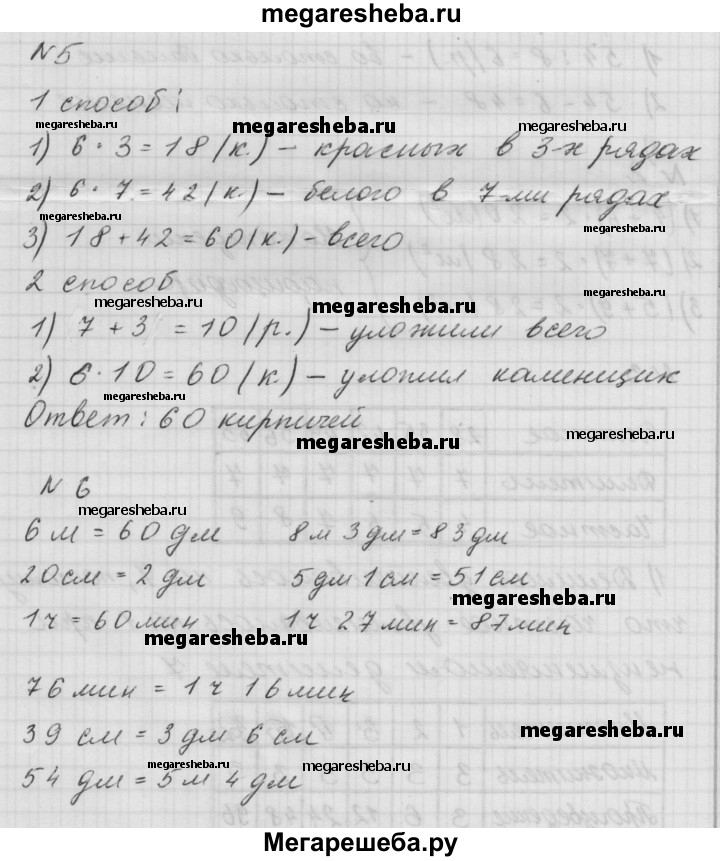 megaresheba.ru
N 5
1 способ:
megaresheba.ru megaresheba.ru megaresheba.ru
1) 6 · 3 = 18 (к.) – красных в 3-х рядах
2) 6 · 7 = 42 (к.) – белого в 7-ми рядах
megaresheba.ru megaresheba.ru
3) 18 + 42 = 60 (к.) – всего
2 способ
megaresheba.ru megaresheba.ru
1) 7 + 3 = 10 (р.) – уложили всего
2) 6 · 10 = 60 (к.) – уложил каменщик
megaresheba.ru megaresheba.ru
Ответ: 60 кирпичей
megaresheba.ru megaresheba.ru
N 6
megaresheba.ru megaresheba.ru
6 м = 60 дм 8 м 3 дм = 83 дм
20 см = 2 дм 5 дм 1 см = 51 см
megaresheba.ru
1 ч = 60 мин 1 ч 27 мин = 87 мин
megaresheba.ru megaresheba.ru
76 мин = 1 ч 16 мин
39 см = 3 дм 6 см
megaresheba.ru
54 дм = 5 м 4 дм
megaresheba.ru megaresheba.ru
Мегарешеба.ру